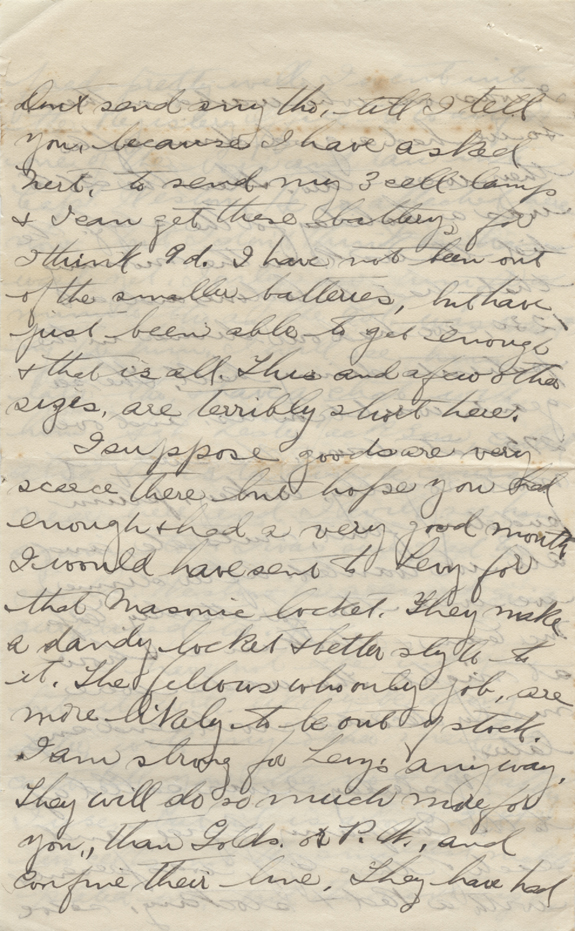 Dont send any tho, till I tell
you, because I have asked
Bert, to send my 3 cell lamp
& I can get these battery, for
I think 9 d. I have not been out
of the smaller batteries, but have
just been able to get enough
& that is all. This and a few other
sizes, are terribly short here.
I suppose goods are very
scece there but hope you had
enough & had a very good month
I would have sent to Levy for
that Masonic locket. They make
a dandy locket & better style to
it. The fellows who only job, are
more likely to be out of stock.
I am strong for Levy's anyway.
They will do so much more for
you, than Golds. or P. W., and
confine their line. They have had